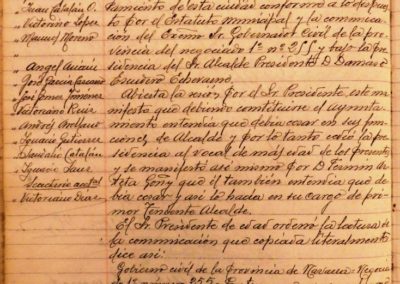 Juan Catalán O.
Victorino López
Manuel Moreno
Angel
José García
José Gomez Jimenez
Saturnino Ruiz
Andrés Arellano
Ignacio Gutierrez
Claudio Catalán
Ignacio Sanz
Victoriano Díaz
tamiento de esta ciudad conforme a lo dispues
to por el Estatuto municipal y la comunica
ción del Excmo Sr. Gobernador Civil de la pro
vincia del negociado 1º nº 255 y bajo la pre
sidencia del Sr. Alcalde Presidente D. Damaso
Abierta la sesión por el Sr. Presidente, este ma
nifesta que debiendo constituirse el ayunta
miento entendia que debia cesar en sus fun
ciones de Alcalde y por lo tanto cedió la pre
sidencia al vocal de más edad de los presentes
y se manifestó asi mismo por D. Fermin de
que el tambien entendia que de
bia cesar y asi lo hacia en su cargo de pri
mer Teniente Alcalde.
El Sr. Presidente de edad ordenó la lectura de
la comunicación que copiada literalmente
dice asi:
Gobierno civil de la provincia de Navarra = Negocia